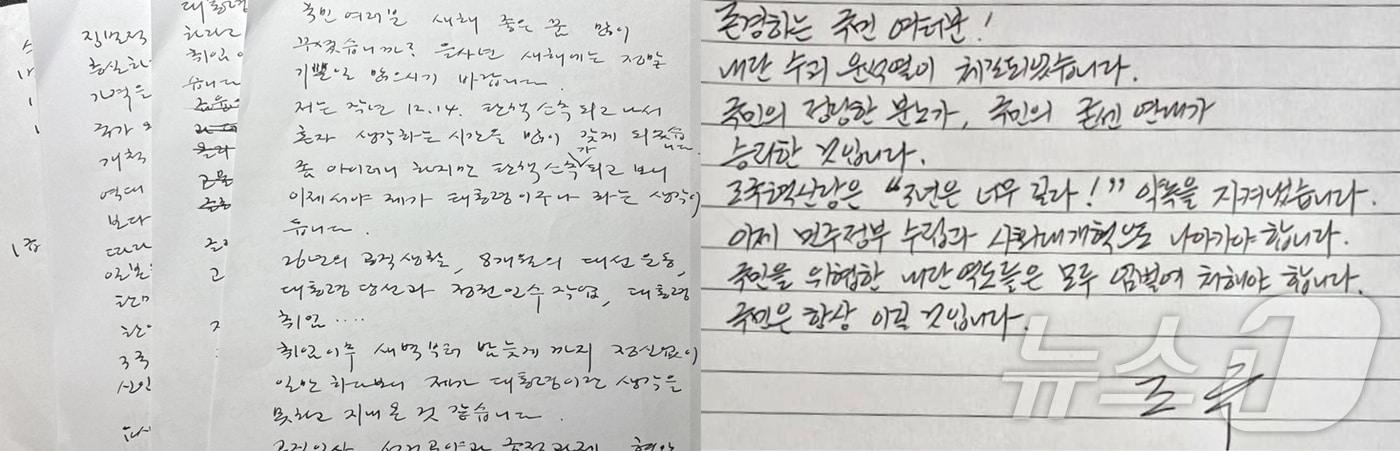 지
1
1
1쪽
직무적
충실히
기억을
국가 오
개척
역대
보다
따라
일본
한미
한
3국
신인
대통령
하라고
취임 이
습니다
국민 여러분 새해 좋은 꿈 많이
꾸셨습니까? 을사년 새해에는 정말
기쁜일 많으시기 바랍니다.
저는 작년 12.14. 탄핵 소추 되고 나서
혼자 생각하는 시간을 많이 갖게 되었습니다.
좀 아이러니 하지만 탄핵 소추가 되고 보니
이제서야 제가 대통령이구나 라는 생각이
듭니다.
26년의 공직생활, 8개월의 대선 운동,
대통령 당선과 정권인수 작업, 대통령
취임....
취임이후 새벽부터 밤늦게 까지 정신없이
일만 하다보니 제가 대통령이란 생각을
못하고 지내 온 것 같습니다.
공정인사, 선거공약과 국정과제, 현안
존경하는 국민 여러분!
내란 수괴 윤석열이 체포되었습니다.
국민의 정당한 분노가, 국민의 굳센 연대가
승리한 것입니다.
조국혁신당은 "3년은 너무 길다!" 약속을 지켜냈습니다.
이제 민주정부 수립과 사회대개혁으로 나아가야 합니다.
국민을 위협한 내란 역도들은 모두 엄벌에 처해야 합니다.
국민은 항상 이길 것입니다.
조 국
뉴스1